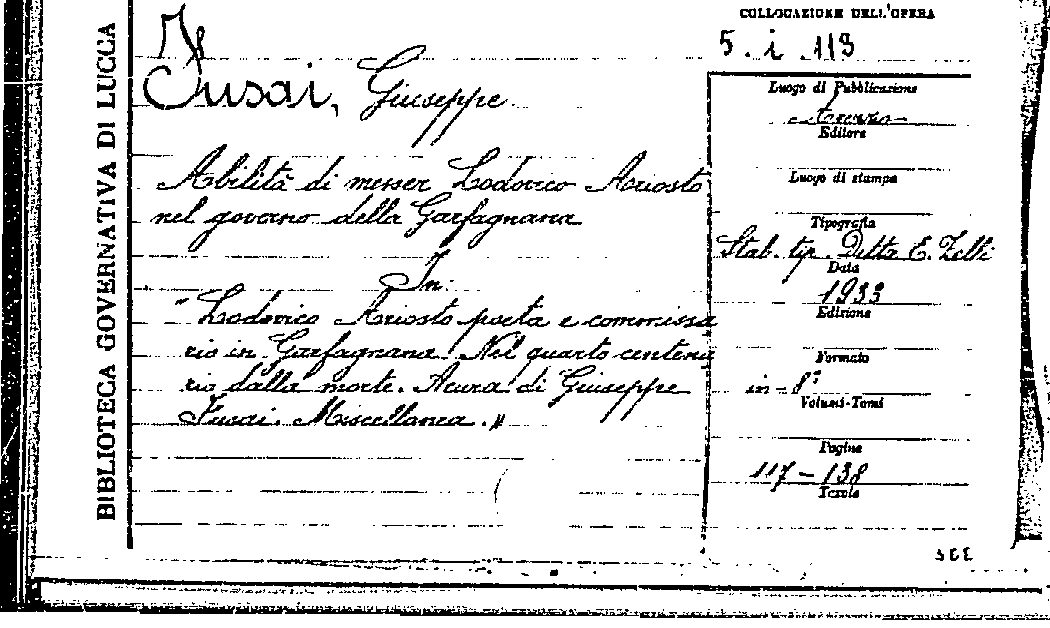 BIBLIOTECA GOVERNATIVA DI LUCCA
Fusai, Giuseppe
Abilità di messer Lodovico Ariosto
nel governo della Garfagnana
In:
"Lodovico Ariosto poeta e commissa
rio in Garfagnana. Nel quarto centena
rio dalla morte. A cura di Giuseppe
Fusai. Miscellanea."
COLLOCAZIONE DELL'OPERA
5. i. 113
Luogo di Pubblicazione
Arezzo
Editore
Luogo di stampa
Tipografia
Stab. tip. Ditta E. Zelli
Data
1933
Edizione
Formato
in-8°
Volumi-Tomi
Pagine
117-138
Tavole